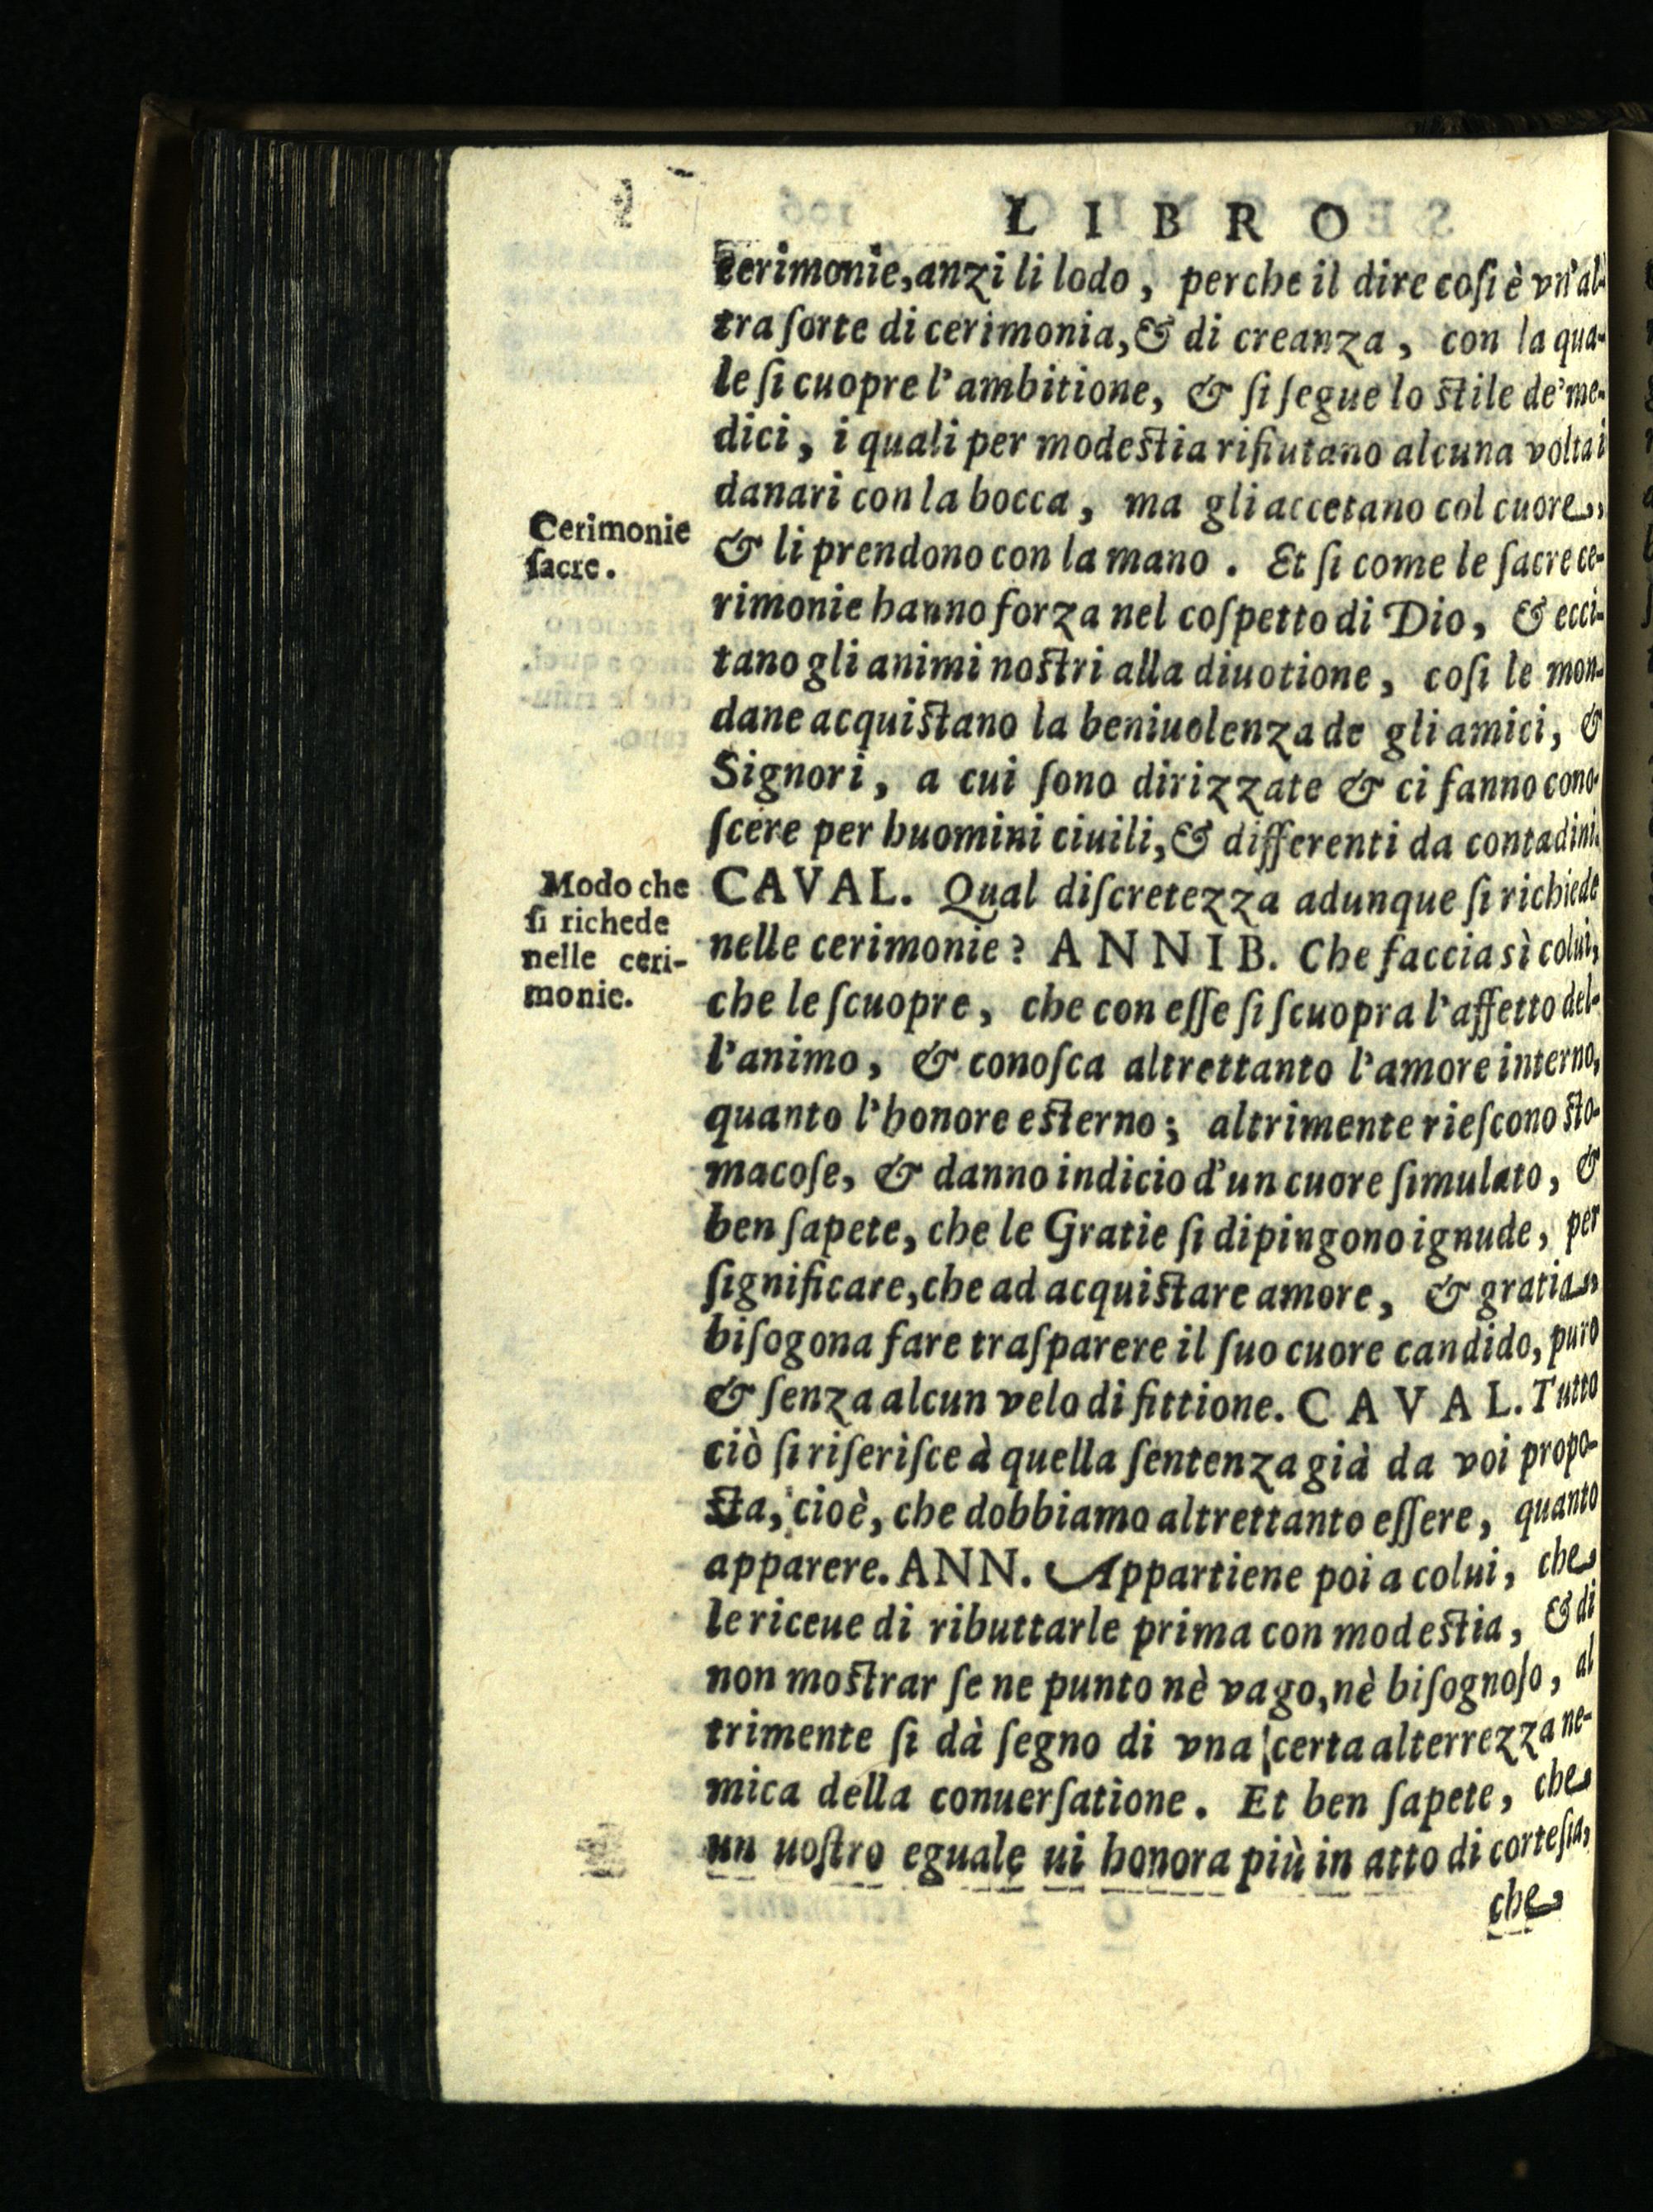 LIBRO
cerimonie, anzi li lodo, perche il dire coſi è vn'al-
tra ſorte di cerimonia, & di creanza, con la qua-
le ſi cuopre l'ambitione, & ſi ſegue lo ſtile de' me-
dici, i quali per modeſtia rifiutano alcuna volta i
danari con la bocca, ma gli accetano col cuore,
Cerimonie
ſacre.
& li prendono con la mano. Et ſi come le ſacre ce-
rimonie hanno forza nel coſpetto di Dio, & ecci-
tano gli animi noſtri alla diuotione, coſi le mon-
dane acquiſtano la beniuolenza de gli amici, &
Signori, a cui ſono dirizzate & ci fanno cono-
ſcere per huomini ciuili, & differenti da contadini.
Modo che
ſi richede
nelle ceri-
monie.
CAVAL. Qual diſcretezza adunque ſi richiede
nelle cerimonie? ANNIB. Che faccia sì colui,
che le ſcuopre, che con eſſe ſi ſcuopra l'affetto del-
l'animo, & conoſca altrettanto l'amore interno,
quanto l'honore eſterno; altrimente rieſcono ſto-
macoſe, & danno indicio d'un cuore ſimulato, &
ben ſapete, che le Gratie ſi dipingono ignude, per
ſignificare, che ad acquiſtare amore, & gratia,
biſogona fare traſparere il ſuo cuore candido, puro
& ſenza alcun velo di fittione. CAVAL. Tutto
ciò ſi riſeriſce à quella ſentenza già da voi propo-
ſta, cioè, che dobbiamo altrettanto eſſere, quanto
apparere. ANN. Appartiene poi a colui, che
le riceue di ributtarle prima con modeſtia, & di
non moſtrar ſe ne punto nè vago, nè biſognoſo, al
trimente ſi dà ſegno di vna certa alterrezza ne-
mica della conuerſatione. Et ben ſapete, che
un uoſtro eguale ui honora più in atto di corteſia,
che